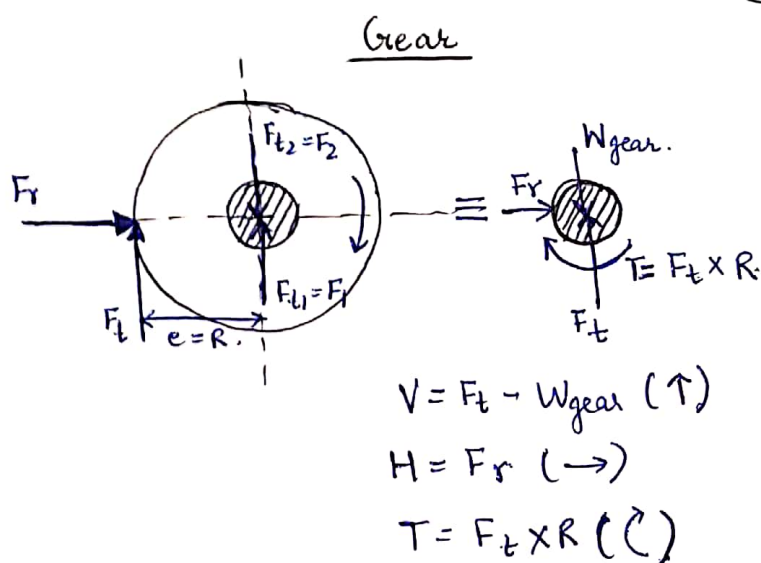 Gear
F_t2 = F_2
F_r
F_t1 = F_1
F_t
e = R.
≡
W gear.
F_r
T = F_t × R.
F_t
V = F_t - W gear (↑)
H = F_r (→)
T = F_t × R (↻)